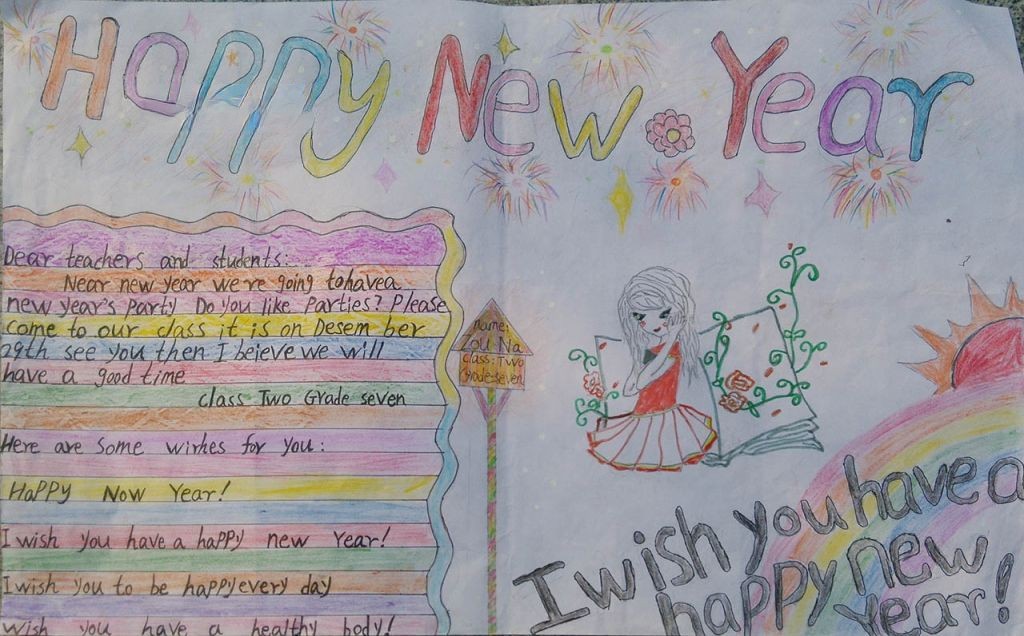 Happy New Year
Dear teachers and students:
Near new year we're going tohavea
new year's party Do you like Parties? Please
come to our class it is on Desem ber
29th see you then I beieve we will
have a good time
class Two Grade seven
Here are some wirhes for you:
HaPPy Now Year!
I wish you have a haPPy new Year!
I wish you to be happyevery day
wish you have a healthy body!
name:
Zou Na
class: Two
Grade-seven
I wish you have a
happy new
year!